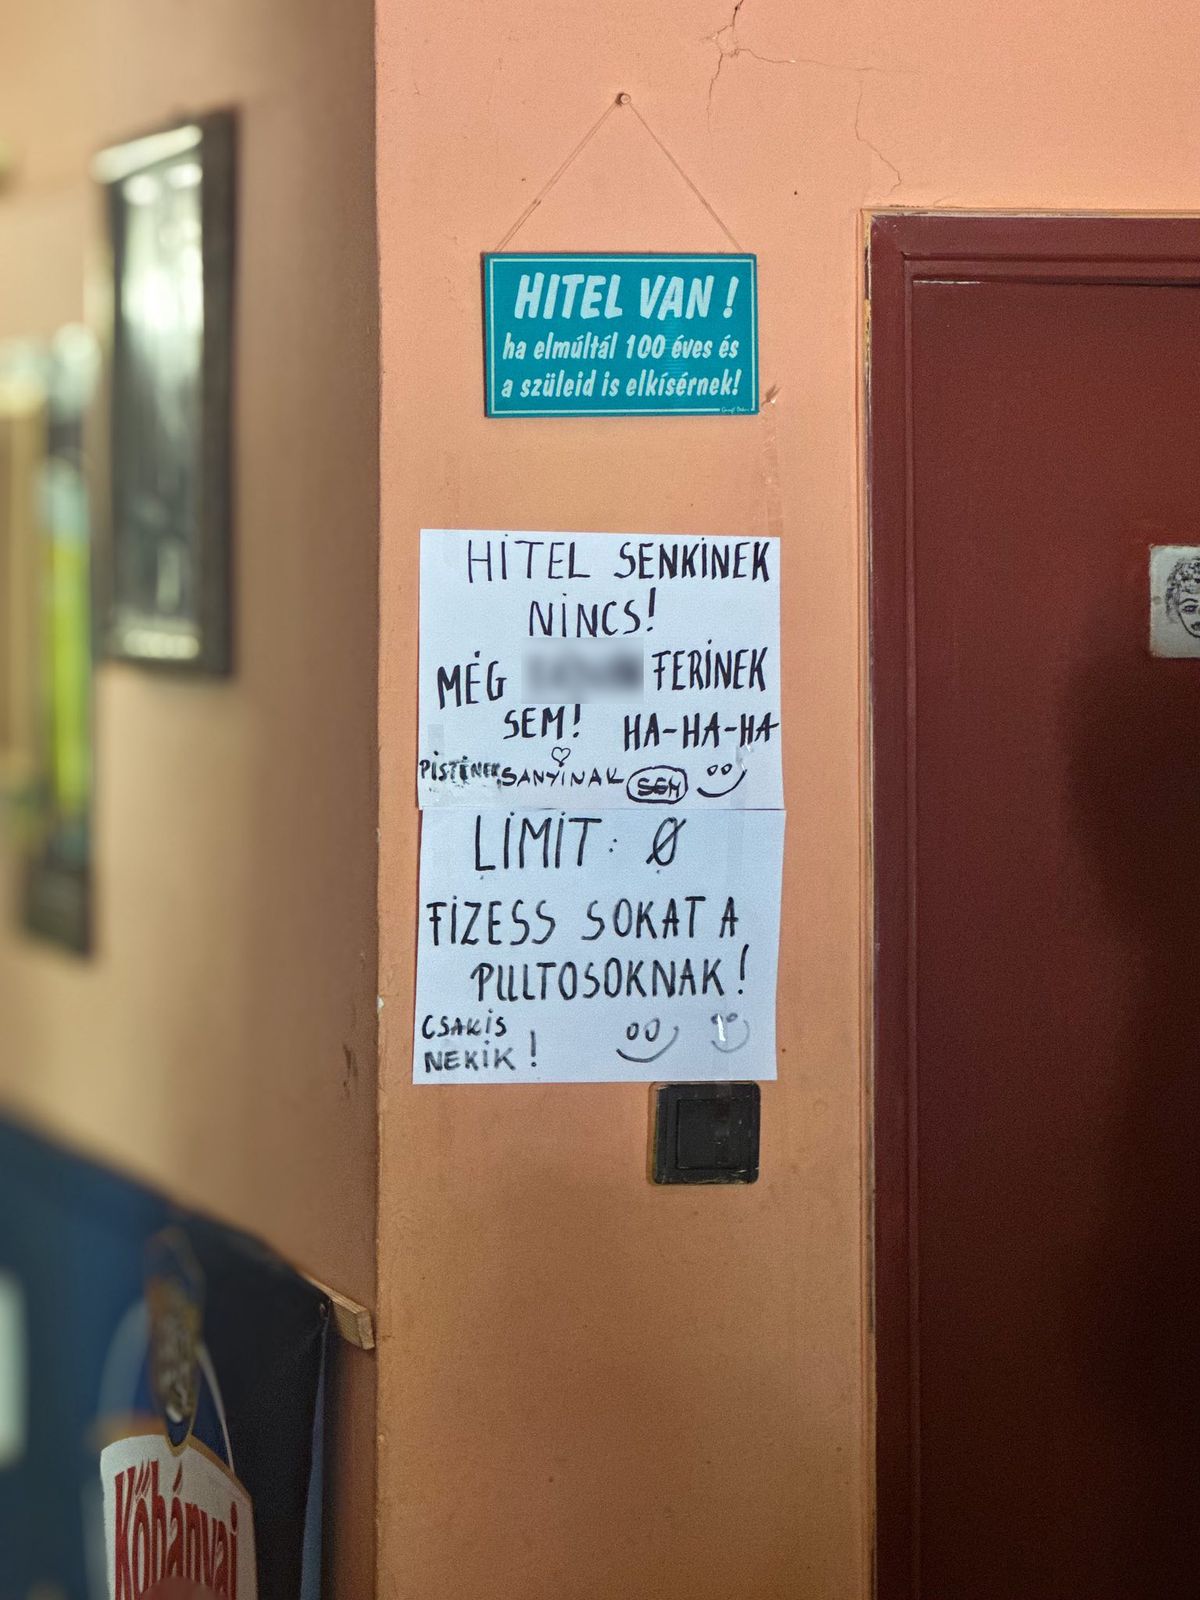 HITEL VAN!
ha elmúltál 100 éves és
a szüleid is elkísérnek!
HITEL SENKINEK
NINCS!
MÉG FERINEK
SEM! HA-HA-HA
PISTINEK SANYINAK SEM
LIMIT: Ø
FIZESS SOKAT A
PULTOSOKNAK!
CSAKIS
NEKIK!
Kőbányai